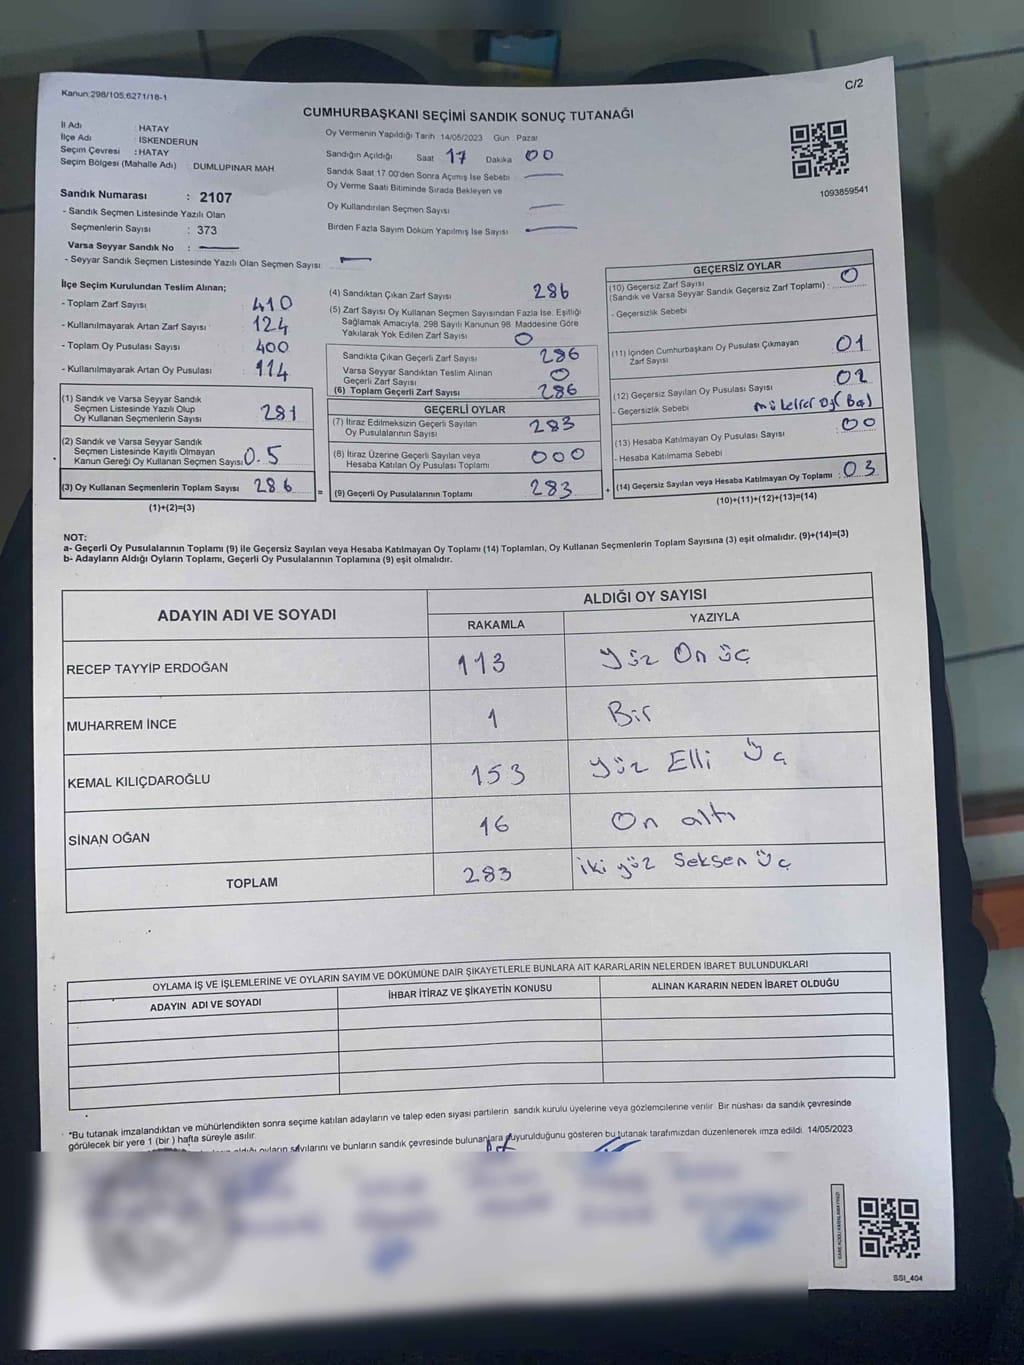 Kanun:298/105,6271/18-1
C/2
CUMHURBAŞKANI SEÇİMİ SANDIK SONUÇ TUTANAĞI
İl Adı : HATAY
İlçe Adı : İSKENDERUN
Seçim Çevresi : HATAY
Seçim Bölgesi (Mahalle Adı) : DUMLUPINAR MAH
Oy Vermenin Yapıldığı Tarih 14/05/2023 Gün : Pazar
Sandığın Açıldığı Saat 17 Dakika 00
Sandık Saat 17 00'den Sonra Açmış İse Sebebi
Oy Verme Saati Bitiminde Sırada Bekleyen ve
Oy Kullandırılan Seçmen Sayısı
Birden Fazla Sayım Döküm Yapılmış İse Sayısı
1093859541
Sandık Numarası : 2107
- Sandık Seçmen Listesinde Yazılı Olan
Seçmenlerin Sayısı : 373
Varsa Seyyar Sandık No :
- Seyyar Sandık Seçmen Listesinde Yazılı Olan Seçmen Sayısı:
İlçe Seçim Kurulundan Teslim Alınan;
- Toplam Zarf Sayısı : 410
- Kullanılmayarak Artan Zarf Sayısı : 124
- Toplam Oy Pusulası Sayısı : 400
- Kullanılmayarak Artan Oy Pusulası : 114
(1) Sandık ve Varsa Seyyar Sandık
Seçmen Listesinde Yazılı Olup
Oy Kullanan Seçmenlerin Sayısı : 281
(2) Sandık ve Varsa Seyyar Sandık
Seçmen Listesinde Kayıtlı Olmayan
Kanun Gereği Oy Kullanan Seçmen Sayısı 0.5
(3) Oy Kullanan Seçmenlerin Toplam Sayısı 286
(1)+(2)=(3)
(4) Sandıktan Çıkan Zarf Sayısı 286
(5) Zarf Sayısı Oy Kullanan Seçmen Sayısından Fazla İse, Eşitliği
Sağlamak Amacıyla, 298 Sayılı Kanunun 98. Maddesine Göre
Yakılarak Yok Edilen Zarf Sayısı 0
Sandıkta Çıkan Geçerli Zarf Sayısı 286
Varsa Seyyar Sandıktan Teslim Alınan
Geçerli Zarf Sayısı 0
(6) Toplam Geçerli Zarf Sayısı 286
GEÇERLİ OYLAR
(7) İtiraz Edilmeksizin Geçerli Sayılan
Oy Pusulalarının Sayısı 283
(8) İtiraz Üzerine Geçerli Sayılan veya
Hesaba Katılan Oy Pusulası Toplamı 000
= (9) Geçerli Oy Pusulalarının Toplamı 283 +
GEÇERSİZ OYLAR
(10) Geçersiz Zarf Sayısı
(Sandık ve Varsa Seyyar Sandık Geçersiz Zarf Toplamı) : 0
- Geçersizlik Sebebi
(11) İçinden Cumhurbaşkanı Oy Pusulası Çıkmayan
Zarf Sayısı 01
(12) Geçersiz Sayılan Oy Pusulası Sayısı 02
- Geçersizlik Sebebi
(13) Hesaba Katılmayan Oy Pusulası Sayısı 00
- Hesaba Katılmama Sebebi
(14) Geçersiz Sayılan veya Hesaba Katılmayan Oy Toplamı : 03
(10)+(11)+(12)+(13)=(14)
NOT:
a- Geçerli Oy Pusulalarının Toplamı (9) ile Geçersiz Sayılan veya Hesaba Katılmayan Oy Toplamı (14) Toplamları, Oy Kullanan Seçmenlerin Toplam Sayısına (3) eşit olmalıdır. (9)+(14)=(3)
b- Adayların Aldığı Oyların Toplamı, Geçerli Oy Pusulalarının Toplamına (9) eşit olmalıdır.
ADAYIN ADI VE SOYADI ALDIĞI OY SAYISI
RAKAMLA YAZIYLA
RECEP TAYYİP ERDOĞAN 113 Yüz On üç
MUHARREM İNCE 1 Bir
KEMAL KILIÇDAROĞLU 153 Yüz Elli Üç
SİNAN OĞAN 16 On altı
TOPLAM 283 iki yüz Seksen Üç
OYLAMA İŞ VE İŞLEMLERİNE VE OYLARIN SAYIM VE DÖKÜMÜNE DAİR ŞİKAYETLERLE BUNLARA AİT KARARLARIN NELERDEN İBARET BULUNDUKLARI
ADAYIN ADI VE SOYADI İHBAR İTİRAZ VE ŞİKAYETİN KONUSU ALINAN KARARIN NEDEN İBARET OLDUĞU
*Bu tutanak imzalandıktan ve mühürlendikten sonra seçime katılan adayların ve talep eden siyasi partilerin sandık kurulu üyelerine veya gözlemcilerine verilir. Bir nüshası da sandık çevresinde
görülecek bir yere 1 (bir) hafta süreyle asılır.
aldığı oyların sayılarını ve bunların sandık çevresinde bulunanlara duyurulduğunu gösteren bu tutanak tarafımızdan düzenlenerek imza edildi. 14/05/2023
SSI_404